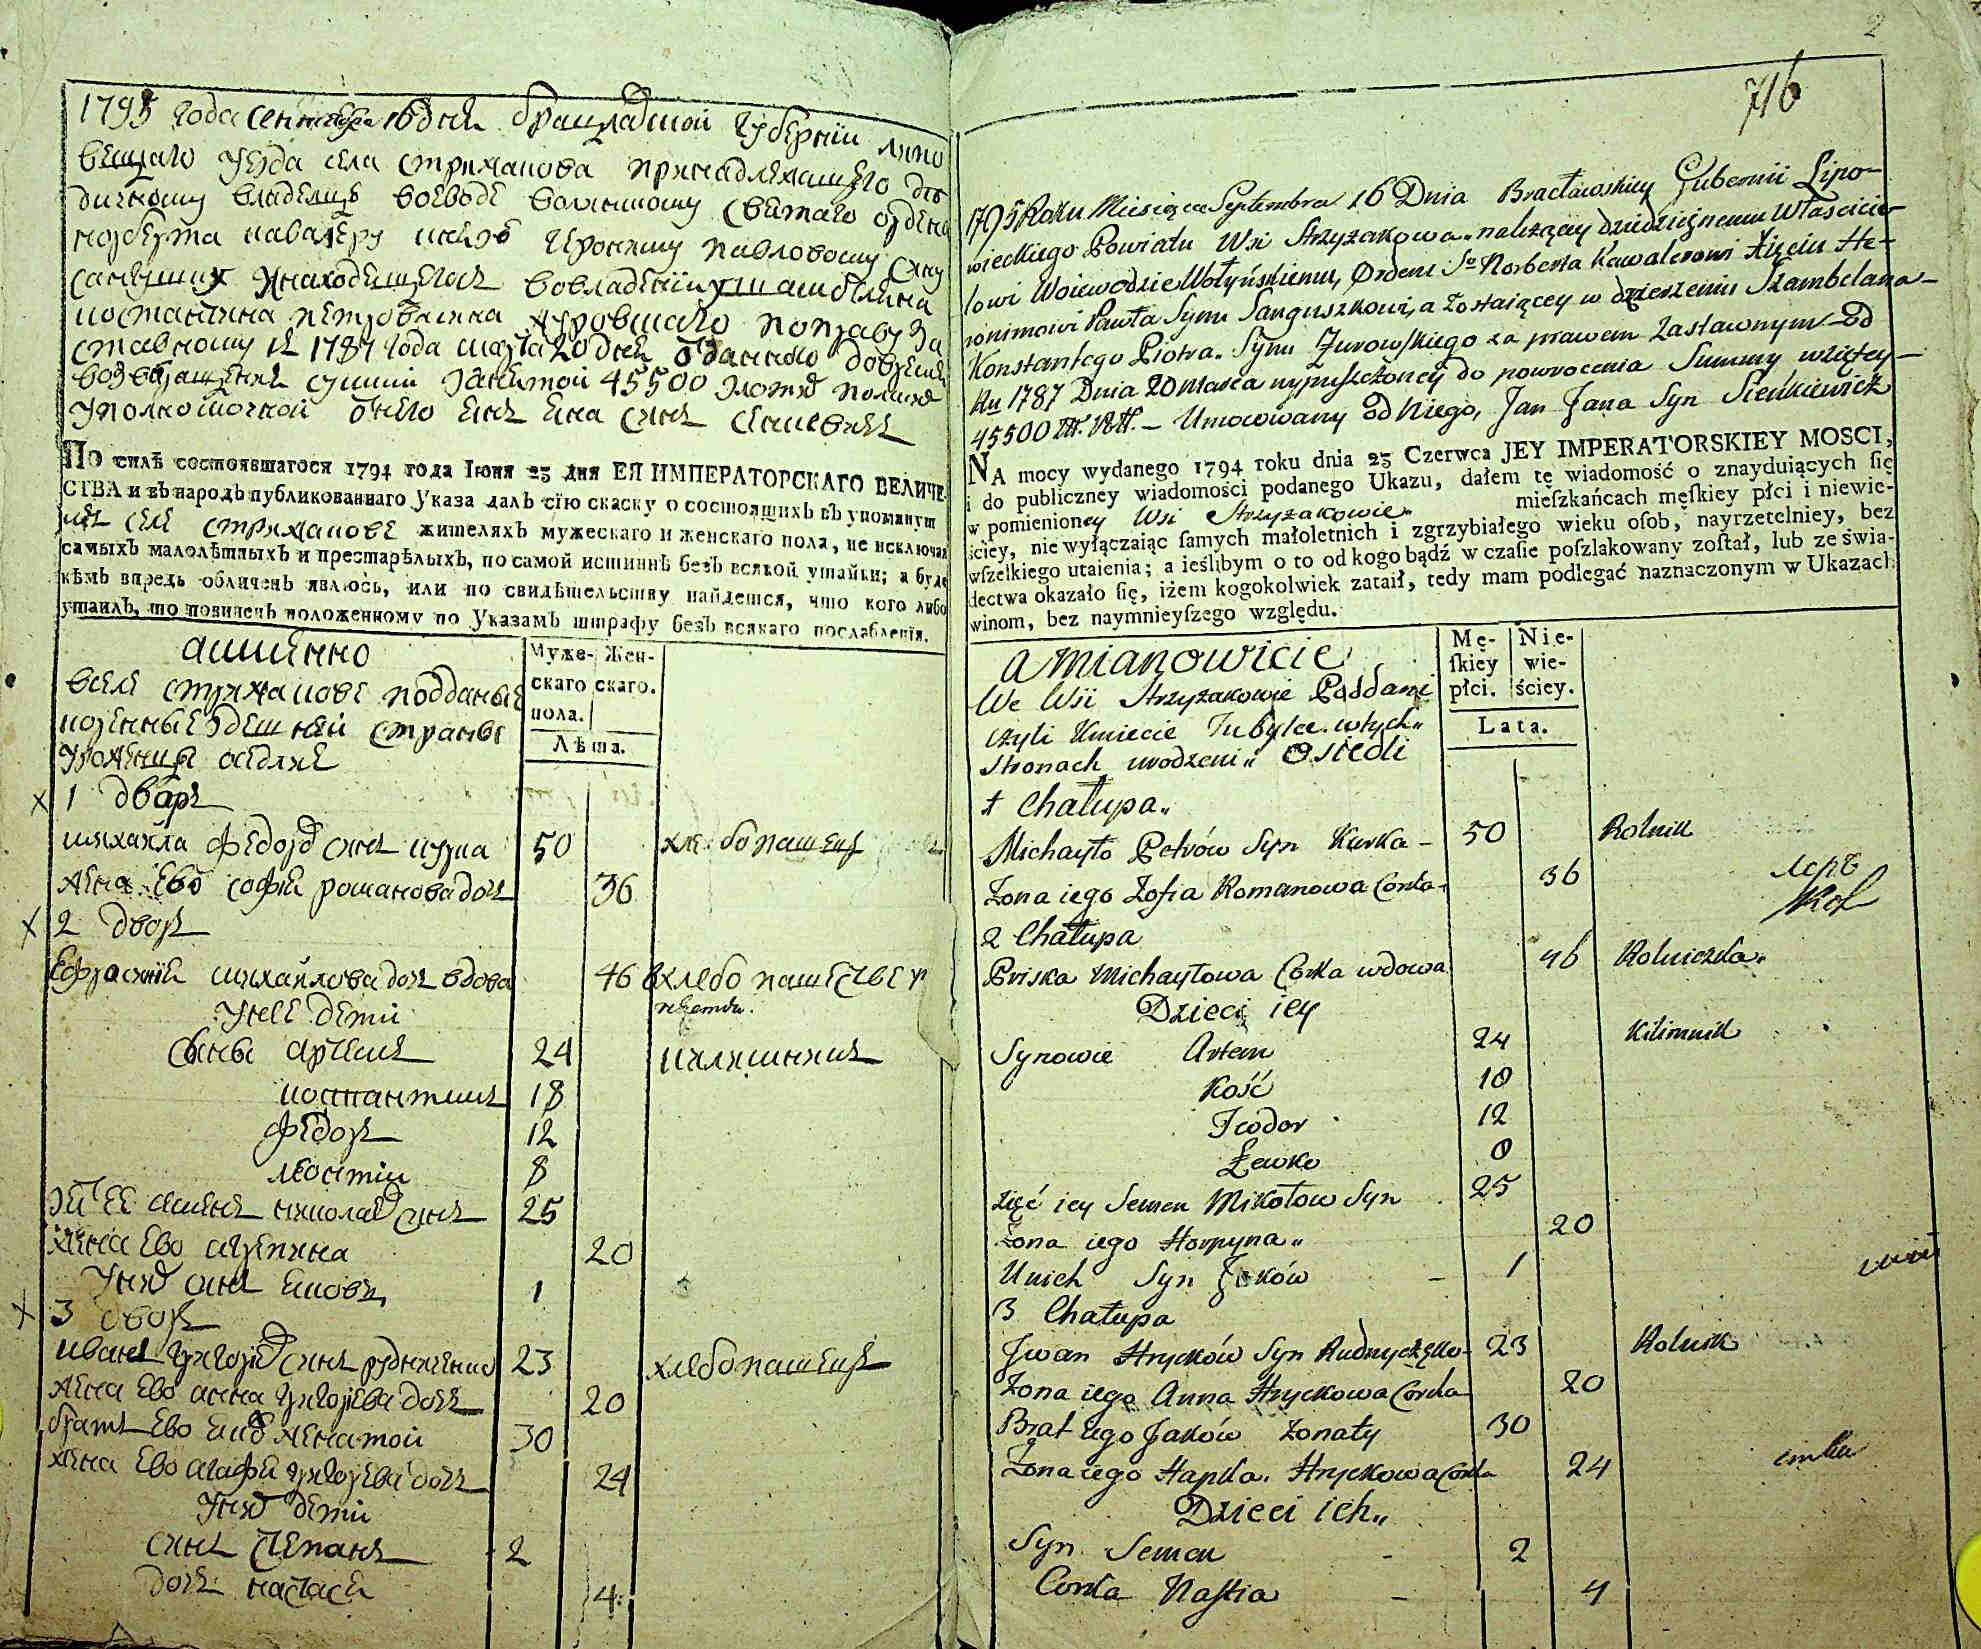 2
716
1795 года сентября 16 дня брацлавской губернии липо
вецкаго уезда села стрижакова принадлежащего дѣ
дичному владелцѣ воеводе волынскому святаго ордена
норберта кавалеру князю Иерониму павловому сину
сангушку находещегося во владении у шамбеляна
константина петрова сина журовского по праву за
ставному из 1787 года марта 20 дня отданного до
возвращения суммы занятой 45500 злотых полских
уполномочной от него Ян Яна син сенкевич
По силѣ состоявшагося 1794 года Іюня 23 дня ЕЯ ИМПЕРАТОРСКАГО ВЕЛИЧЕ-
СТВА и въ народъ публикованнаго Указа далъ сію скаску о состоящихъ въ упомянут
селе стрижакове жителяхъ мужескаго и женскаго пола, не исключая
самыхъ малолѣтныхъ и престарѣлыхъ, по самой истиннѣ безъ всякой утайки; а буде
кѣмъ впредь обличенъ явлюсь, или по свидѣтельству найдется, что кого либо
утаилъ, то повиненъ положенному по Указамъ штрафу безъ всякаго послабленія.
а имянно
Муже- Жен-
скаго скаго.
пола.
Лѣта.
в селе стрижакове подданые
коренные здешней страны
уроженцы оседлие
1 дворъ
михайла федоров синъ курка 50 хлебопашецъ
жена ево софия романова дочь 36
2 дворъ
Ефросиния михайлова дочь вдова 46 в хлебопашестве у
у нее дети
сыны артемъ 24 килимникъ
константинъ 18
федоръ 12
леонтий 8
зять ее семенъ николаев синъ 25
жена ево агрепина 20
у них синъ яковъ 1
3 дворъ
иванъ григориев синъ рудниченко 23 хлебопашецъ
жена ево анна григорева дочь 20
братъ ево яков женатой 30
жена ево агафия григорева дочь 24
у них дети
синъ степанъ 2
дочь настася 4
1795 Roku Miesiąca Septembra 16 Dnia Bracławskiey Gubernii Lipo-
wieckiego Powiatu Wsi Strzyżakowa należącey dziedzicznemu Właścicie-
lowi Woiewodzie Wołyńskiemu, Orderu So Norberta Kawalerowi Xięciu He-
ronimowi Pawła Synu Sanguszkowi, a zostaiącey w dzierżeniu Szambelana
Konstantego Piotra Synu Żurowskiego za prawem zastawnym od
Ru 1787 Dnia 20 Marca wypuszczoney do powrocenia Summy wziętey
45500 Umocowany od Niego, Jan Jana Syn Sienkiewicz
NA mocy wydanego 1794 roku dnia 23 Czerwca JEY IMPERATORSKIEY MOSCI,
i do publiczney wiadomości podanego Ukazu, dałem tę wiadomość o znayduiących ſię
w pomienioney Wsi Strzyżakowie mieſzkańcach męſkiey płci i niewie-
ściey, nie wyłączaiąc ſamych małoletnich i zgrzybiałego wieku oſob, nayrzetelniey, bez
wſzelkiego utaienia; a ieślibym o to od kogo bądź w czaſie poſzlakowany zoſtał, lub ze świa-
dectwa okazało ſię, iżem kogokolwiek zataił, tedy mam podlegać naznaczonym w Ukazach
winom, bez naymnieyſzego względu.
a mianowicie
Mę- Nie-
ſkiey wie-
płci. ściey.
Lata.
We Wsi Strzyżakowie Poddani
czyli Kmiecie Tubylce w tych
Stronach urodzeni Osiedli
1 Chałupa
Michayło Petrów Syn Kurka 50 Rolnik
Żona iego Zofia Romanowa Corka 36
2 Chałupa
Pryska Michayłowa Corka wdowa 46 Rolniczka
Dzieci iey
Synowie Artem 24 Kilimnik
Kość 18
Teodor 12
Lewko 8
zięć iey Semen Mikołow Syn 25
Żona iego Horpyna 20
U nich Syn Jaków 1
3 Chałupa
Iwan Hryćków Syn Rudnyczęko 23 Rolnik
Żona iego Anna Hryckowa Corka 20
Brat iego Jaków żonaty 30
Żona iego Hapka Hryckowa Corka 24
Dzieci ich
Syn Semen 2
Corka Nastia 4